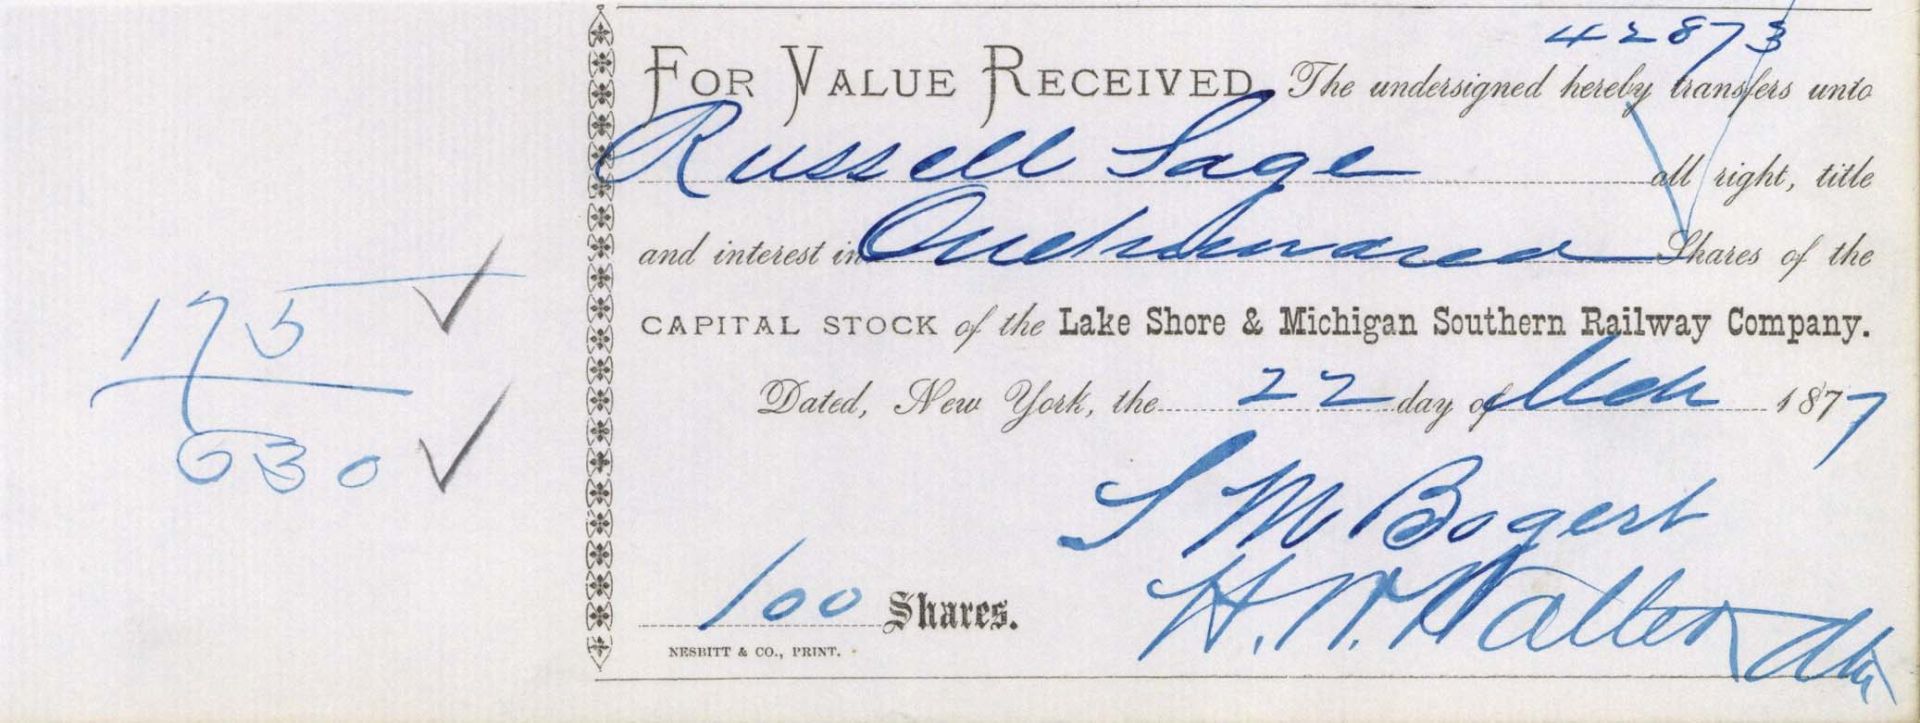 42873
FOR VALUE RECEIVED, The undersigned hereby transfers unto
Russell Sage all right, title
and interest in One hundred Shares of the
CAPITAL STOCK of the Lake Shore & Michigan Southern Railway Company.
Dated, New York, the 22 day of Mch 1877
S M Bogert
H. N. Walter Atty
100 Shares.
NESBITT & CO., PRINT.
175
630